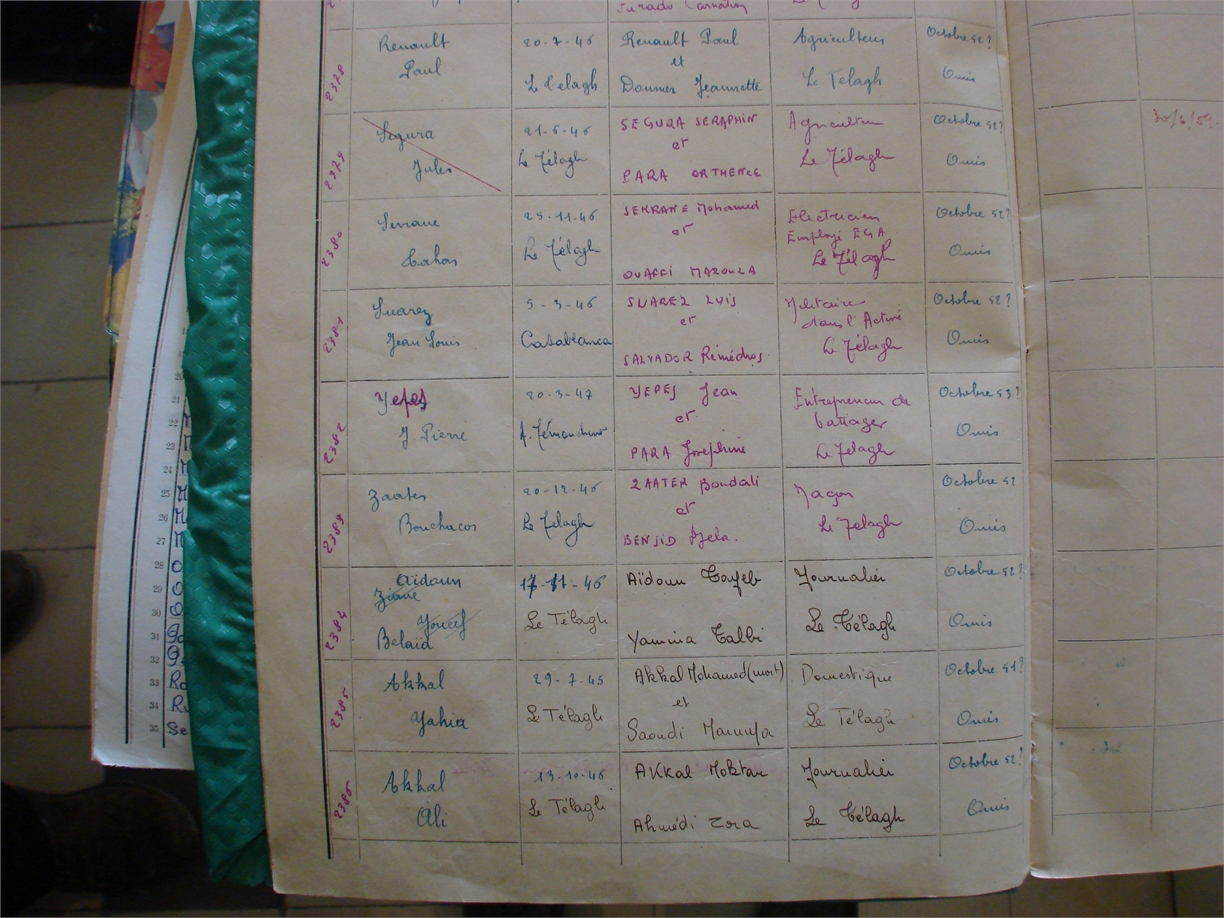 2378
Renault
Paul
20-7-46
Le Telagh
Renault Paul
et
Doumer Jeannette
Agriculteur
Le Telagh
Octobre 52?
Omis
2379
Segura
Jules
21-6-46
Le Télagh
SEGURA SERAPHIN
et
PARA ORTHENCE
Agriculteur
Le Télagh
Octobre 52?
Omis
30/6/59
2380
Serrane
25-11-46
Le Télagh
SERRANE Mohamed
et
OUAFFI
Electricien
Employé EGA
Le Télagh
Octobre 52?
Omis
2381
Suarez
Jean Louis
5-3-46
Casablanca
SUAREZ LUIS
et
SALVADOR Rémédios
Militaire
dans l'Active
Le Télagh
Octobre 52?
Omis
2382
Yepes
J Pierre
20-3-47
A. Témouchent
YEPES Jean
et
PARA Josephine
Entrepreneur de
battages
Le Telagh
Octobre 53?
Omis
2383
Zaater
Bouchacor
20-12-46
Le Telagh
ZAATER Boudali
et
BENJID
Maçon
Le Telagh
Octobre 52
Omis
2384
Aïdoun
Ziane
Youcef
Belaïd
17-11-46
Le Télagh
Aïdoun Tayeb
Yamina Talbi
Journalier
Le Télagh
Octobre 52?
Omis
2385
Akkal
Yahia
29-7-45
Le Télagh
Akkal Mohamed (mort)
et
Saoudi
Domestique
Le Télagh
Octobre 51?
Omis
2386
Akkal
Ali
13-10-46
Le Télagh
Akkal Moktar
Ahmédi Zora
Journalier
Le Télagh
Octobre 52?
Omis
21
22
23
24
25
26
27
28
29
30
31
32
33
34
35